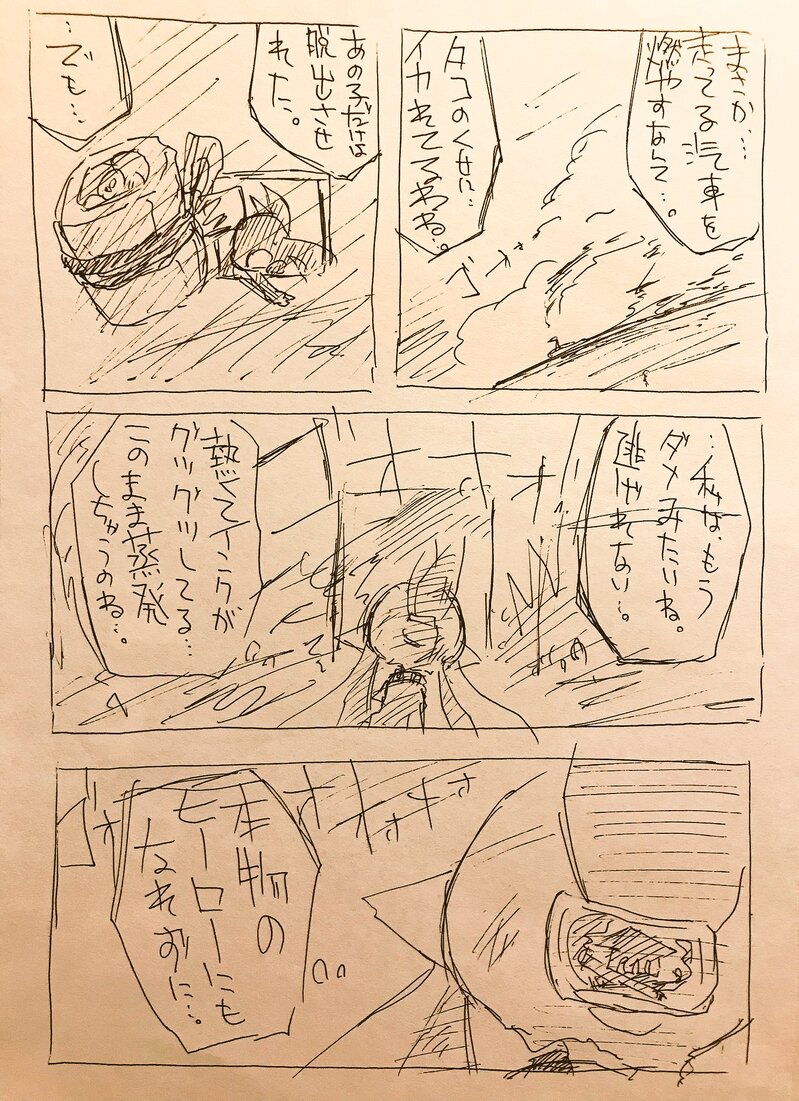 まさか…
走ってる汽車を
燃やすなんて…。
タコのくせに…
イカれてるわね…。
あの子だけは
脱出させ
れた。
…でも…
…私は、もう
ダメみたいね。
逃げれない…。
熱くてインクが
グツグツしてる…
このまま蒸発
しちゃうのね…。
本物の
ヒーローにも
なれずに…。